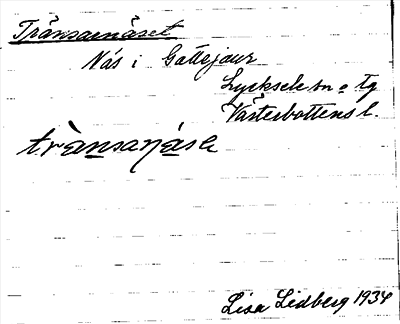 Tränsarnäset
Näs i Gattejaur
Lycksele sn o tg
Västerbottens l.
trànsanásɐ
Lisa Lidberg 1934